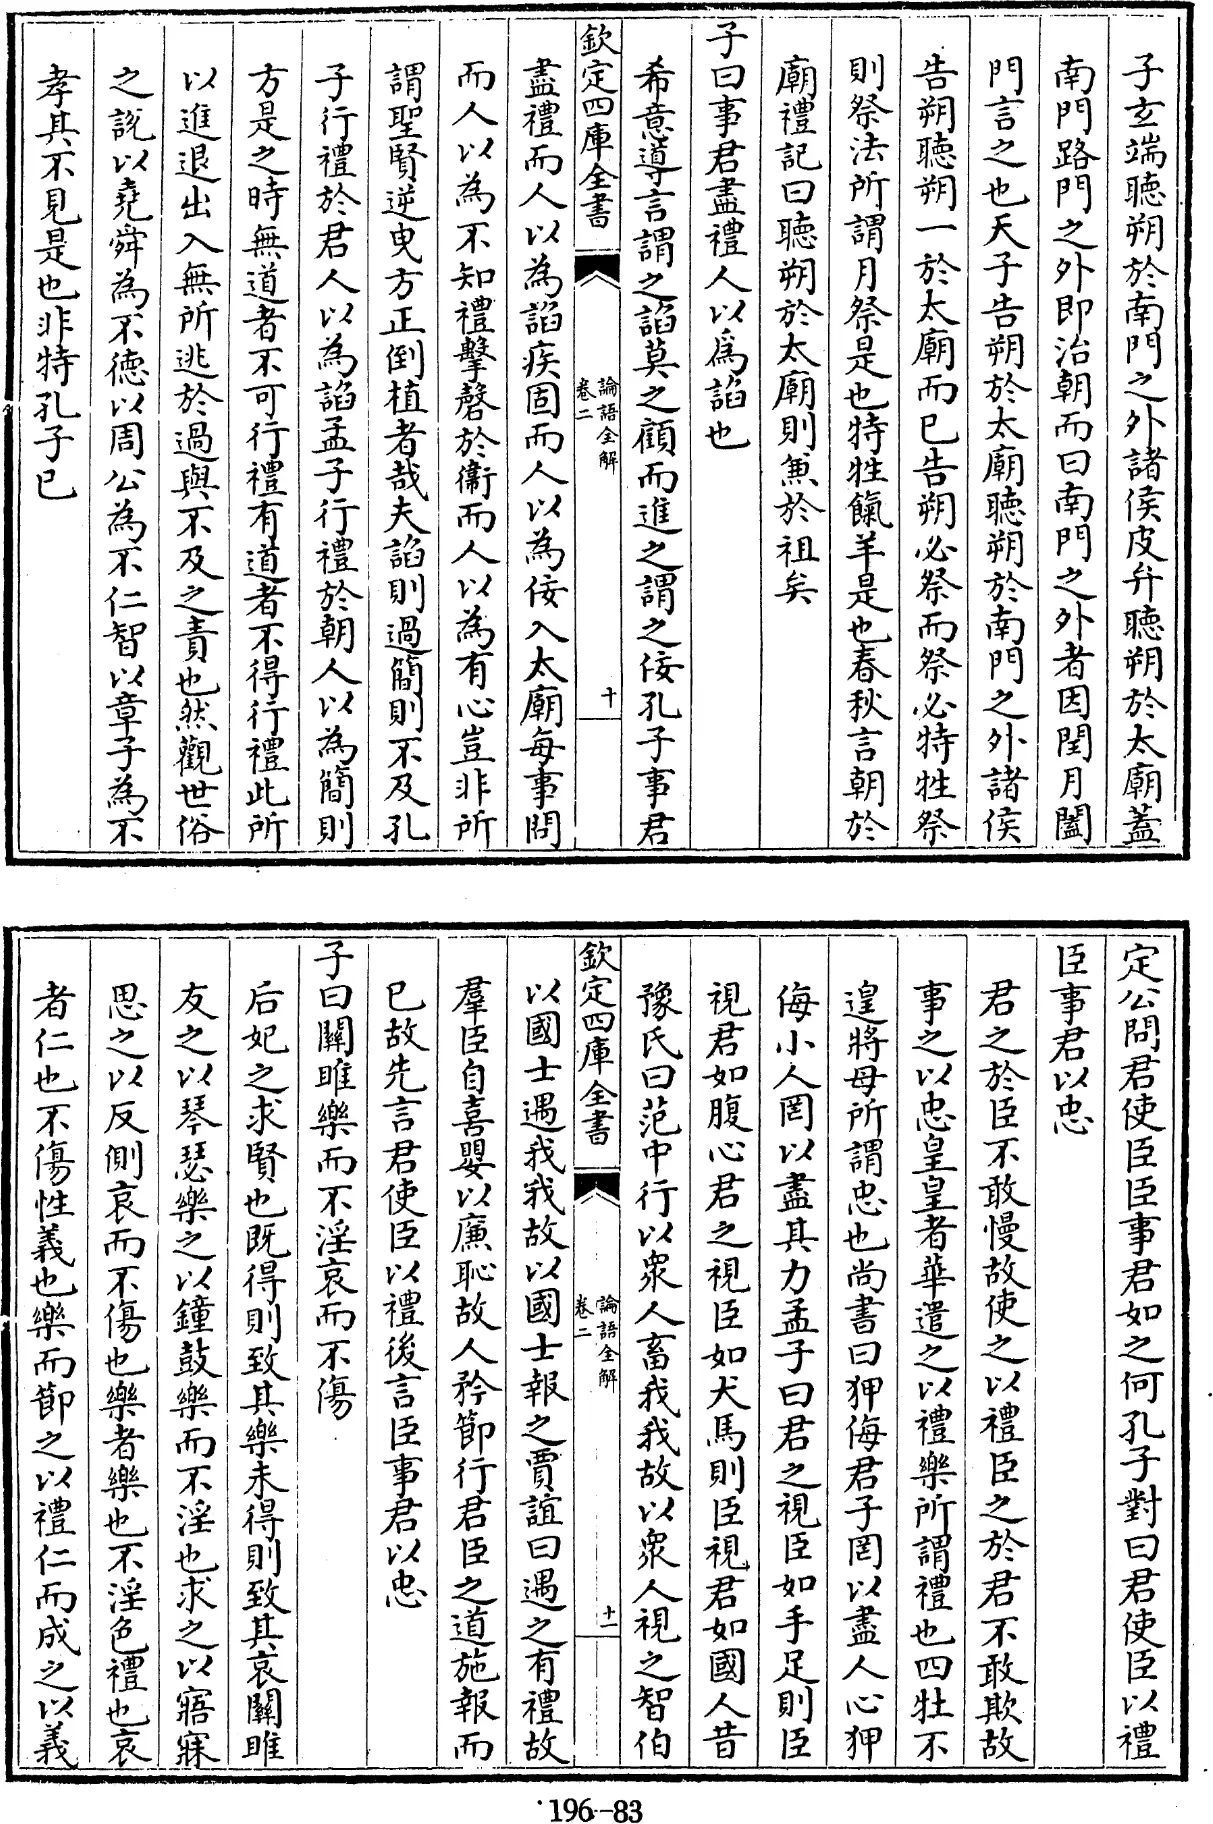 子玄端聽朔於南門之外諸侯皮弁聽朔於太廟蓋
南門路門之外即治朝而曰南門之外者因閏月闔
門言之也天子告朔於太廟聽朔於南門之外諸侯
告朔聽朔一於太廟而已告朔必祭而祭必特牲祭
則祭法所謂月祭是也特牲餼羊是也春秋言朝於
廟禮記曰聽朔於太廟則兼於祖矣
子曰事君盡禮人以為諂也
希意導言謂之諂莫之顧而進之謂之佞孔子事君
欽定四庫全書
論語全解
卷二
十
盡禮而人以為諂疾固而人以為佞入太廟每事問
而人以為不知禮擊磬於衞而人以為有心豈非所
謂聖賢逆曳方正倒植者哉夫諂則過簡則不及孔
子行禮於君人以為諂孟子行禮於朝人以為簡則
方是之時無道者不可行禮有道者不得行禮此所
以進退出入無所逃於過與不及之責也然觀世俗
之說以堯舜為不德以周公為不仁智以章子為不
孝其不見是也非特孔子已
定公問君使臣臣事君如之何孔子對曰君使臣以禮
臣事君以忠
君之於臣不敢慢故使之以禮臣之於君不敢欺故
事之以忠皇皇者華遣之以禮樂所謂禮也四牡不
遑將母所謂忠也尚書曰狎侮君子罔以盡人心狎
侮小人罔以盡其力孟子曰君之視臣如手足則臣
視君如腹心君之視臣如犬馬則臣視君如國人昔
豫氏曰范中行以衆人畜我我故以衆人視之智伯
欽定四庫全書
論語全解
卷二
十一
以國士遇我我故以國士報之賈誼曰遇之有禮故
羣臣自喜嬰以廉恥故人矜節行君臣之道施報而
已故先言君使臣以禮後言臣事君以忠
子曰關雎樂而不淫哀而不傷
后妃之求賢也既得則致其樂未得則致其哀關雎
友之以琴瑟樂之以鐘鼓樂而不淫也求之以寤寐
思之以反側哀而不傷也樂者樂也不淫色禮也哀
者仁也不傷性義也樂而節之以禮仁而成之以義
196-83